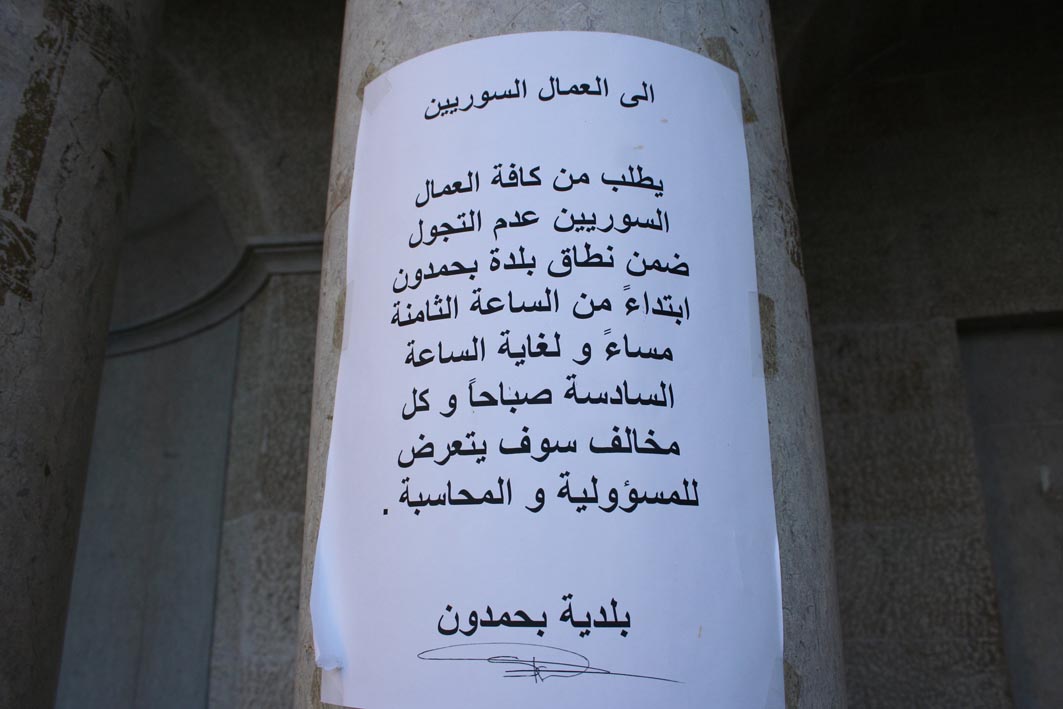 الى العمال السوريين
يطلب من كافة العمال
السوريين عدم التجول
ضمن نطاق بلدة بحمدون
ابتداءً من الساعة الثامنة
مساءً و لغاية الساعة
السادسة صباحاً و كل
مخالف سوف يتعرض
للمسؤولية و المحاسبة .
بلدية بحمدون